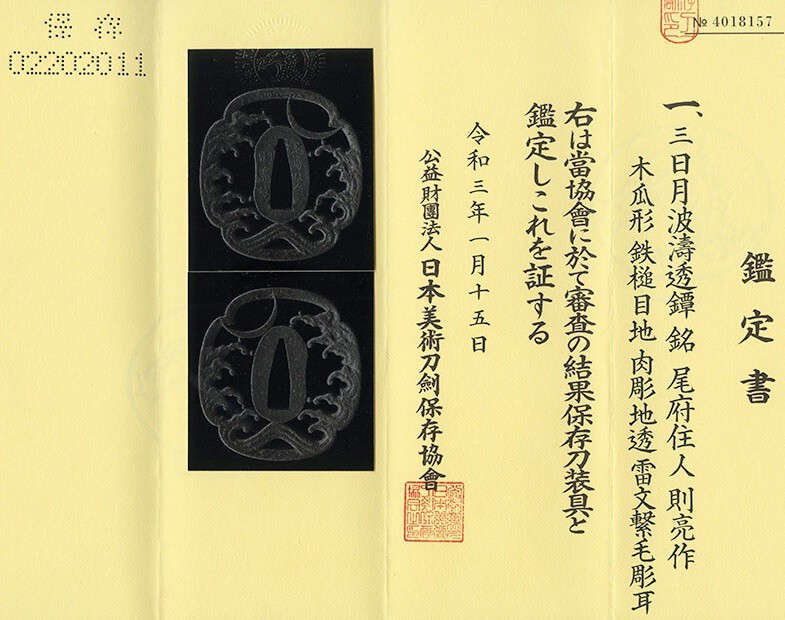 № 4018157
鑑定書
一、三日月波濤透鐔 銘 尾府住人 則亮作
木瓜形 鉄槌目地 肉彫地透 雷文繋毛彫耳
右は當協會に於て審査の結果保存刀装具と
鑑定しこれを証する
令和三年一月十五日
公益財團法人 日本美術刀劍保存協會
保存
02202011